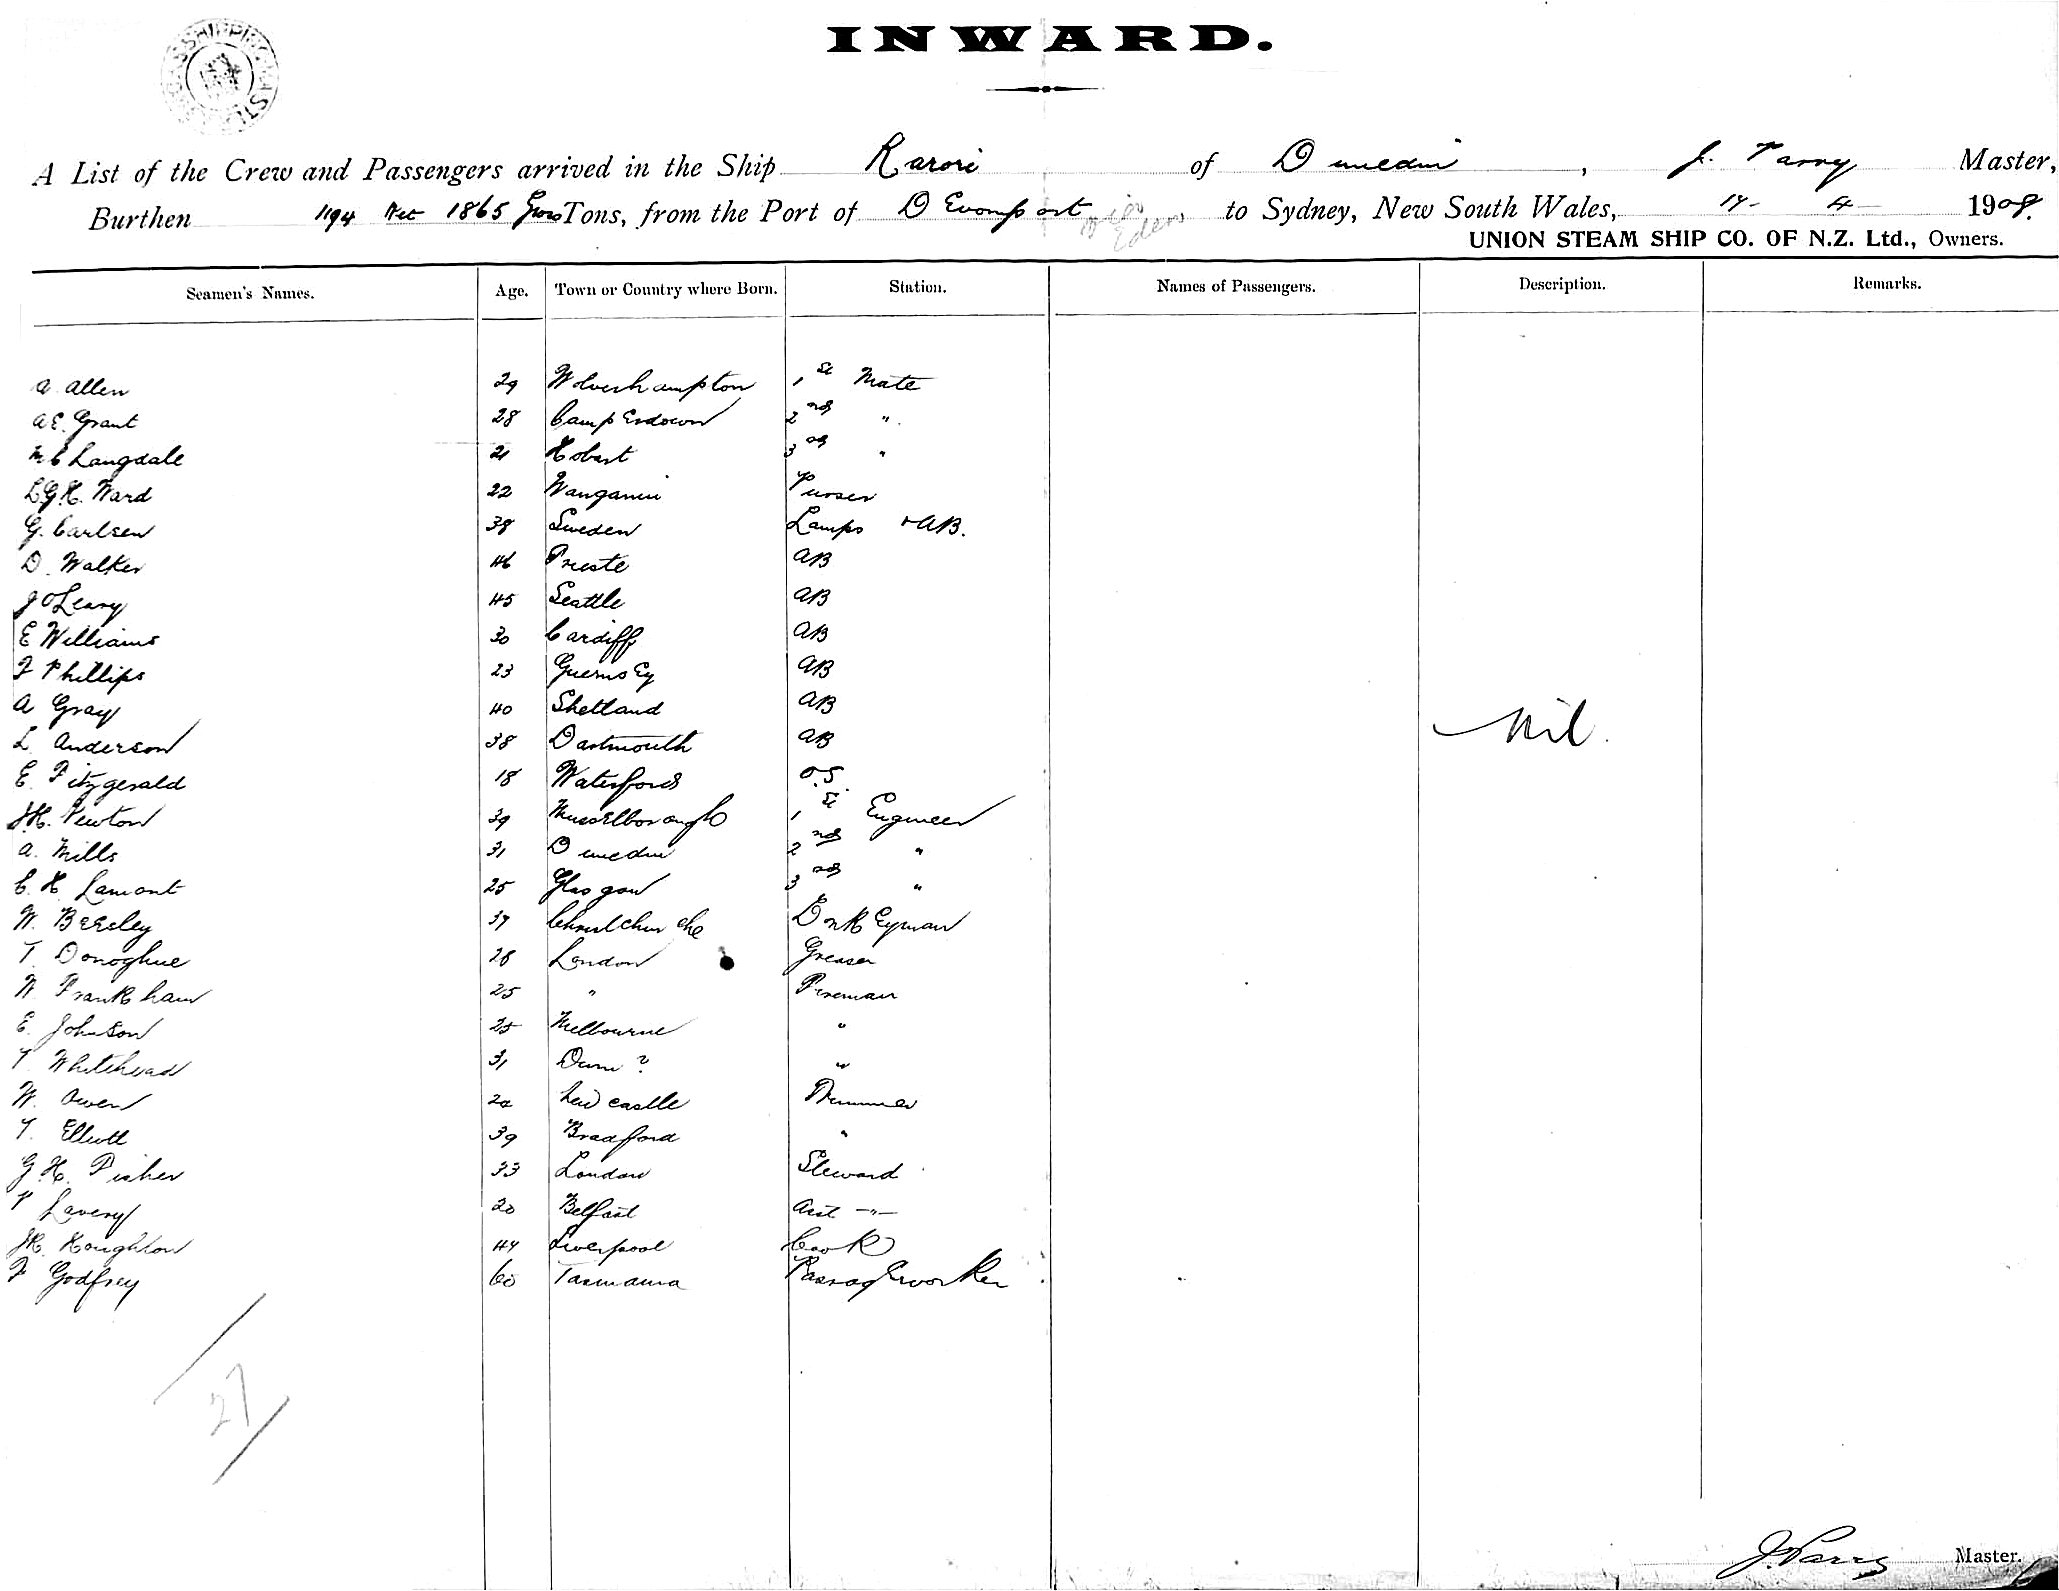 INWARD.
A List of the Crew and Passengers arrived in the Ship Karori of Dunedin, J. Parry Master,
Burthen 1194 Net 1865 Gross Tons, from the Port of DEvonport via Eden to Sydney, New South Wales, 4 1908.
UNION STEAM SHIP CO. OF N.Z. Ltd., Owners.
Seamen's Names. Age. Town or Country where Born. Station. Names of Passengers. Description. Remarks.
A Allen 29 Wolverhampton 1st Mate
A E. Grant 28 CampErdown 2nd "
Langdale 21 Hobart 3rd "
L.G.H. Ward 22 Wanganui Purser
G. Carlsen 38 Sweden Lamps + AB.
D. Walker 46 Trieste AB
J OLeary 45 Seattle AB
E Williams 30 Cardiff AB
F Phillips 23 GuernsEy AB
A Gray 40 Shetland AB
Nil.
L Anderson 38 Dartmouth AB
E. Fitzgerald 18 Waterford O.S.
J.H. Newton 39 MussElborough 1st Engineer
A. Mills 31 Dunedin 2nd "
C. H Lamont 25 Glasgow 3rd "
W. BEEsley 37 Christchurche DonkEyman
T. Donoghue 28 London Greaser
W Frankham 25 " Fireman
E. Johnson 25 Melbourne "
T Whitehead 31 ? "
W. Owen 24 Newcastle Trimmer
T. Elliott 39 Bradford "
G. H. Fisher 33 London Steward
P Lavery 20 Belfast Asst —"—
JH. Houghton 47 Liverpool Cook
F Godfrey 60 Tasmania PassagEworker
27
J. Parry Master.